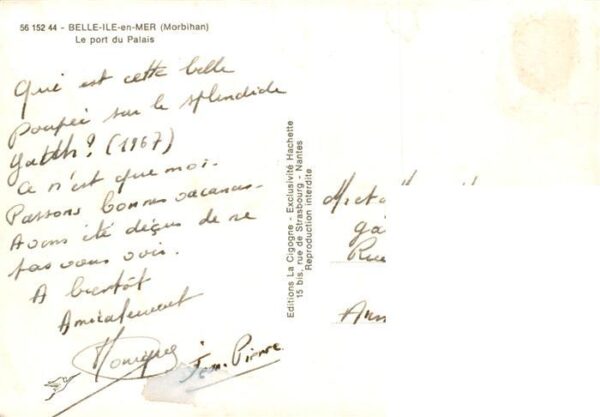 56 152 44 - BELLE-ILE-en-MER (Morbihan)
Le port du Palais
Qui est cette belle
Poupée sur le splendide
Yatch? (1967)
Ce n'est que moi.
Passons bonnes vacances.
Avons été déçus de ne
pas vous voir.
A bientôt
Amicalement
Monique
Jean-Pierre
Editions La Cigogne - Exclusivité Hachette
15 bis, rue de Strasbourg - Nantes
Reproduction interdite